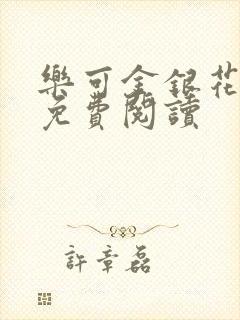 樂可金銀花
免費閱讀
許章磊